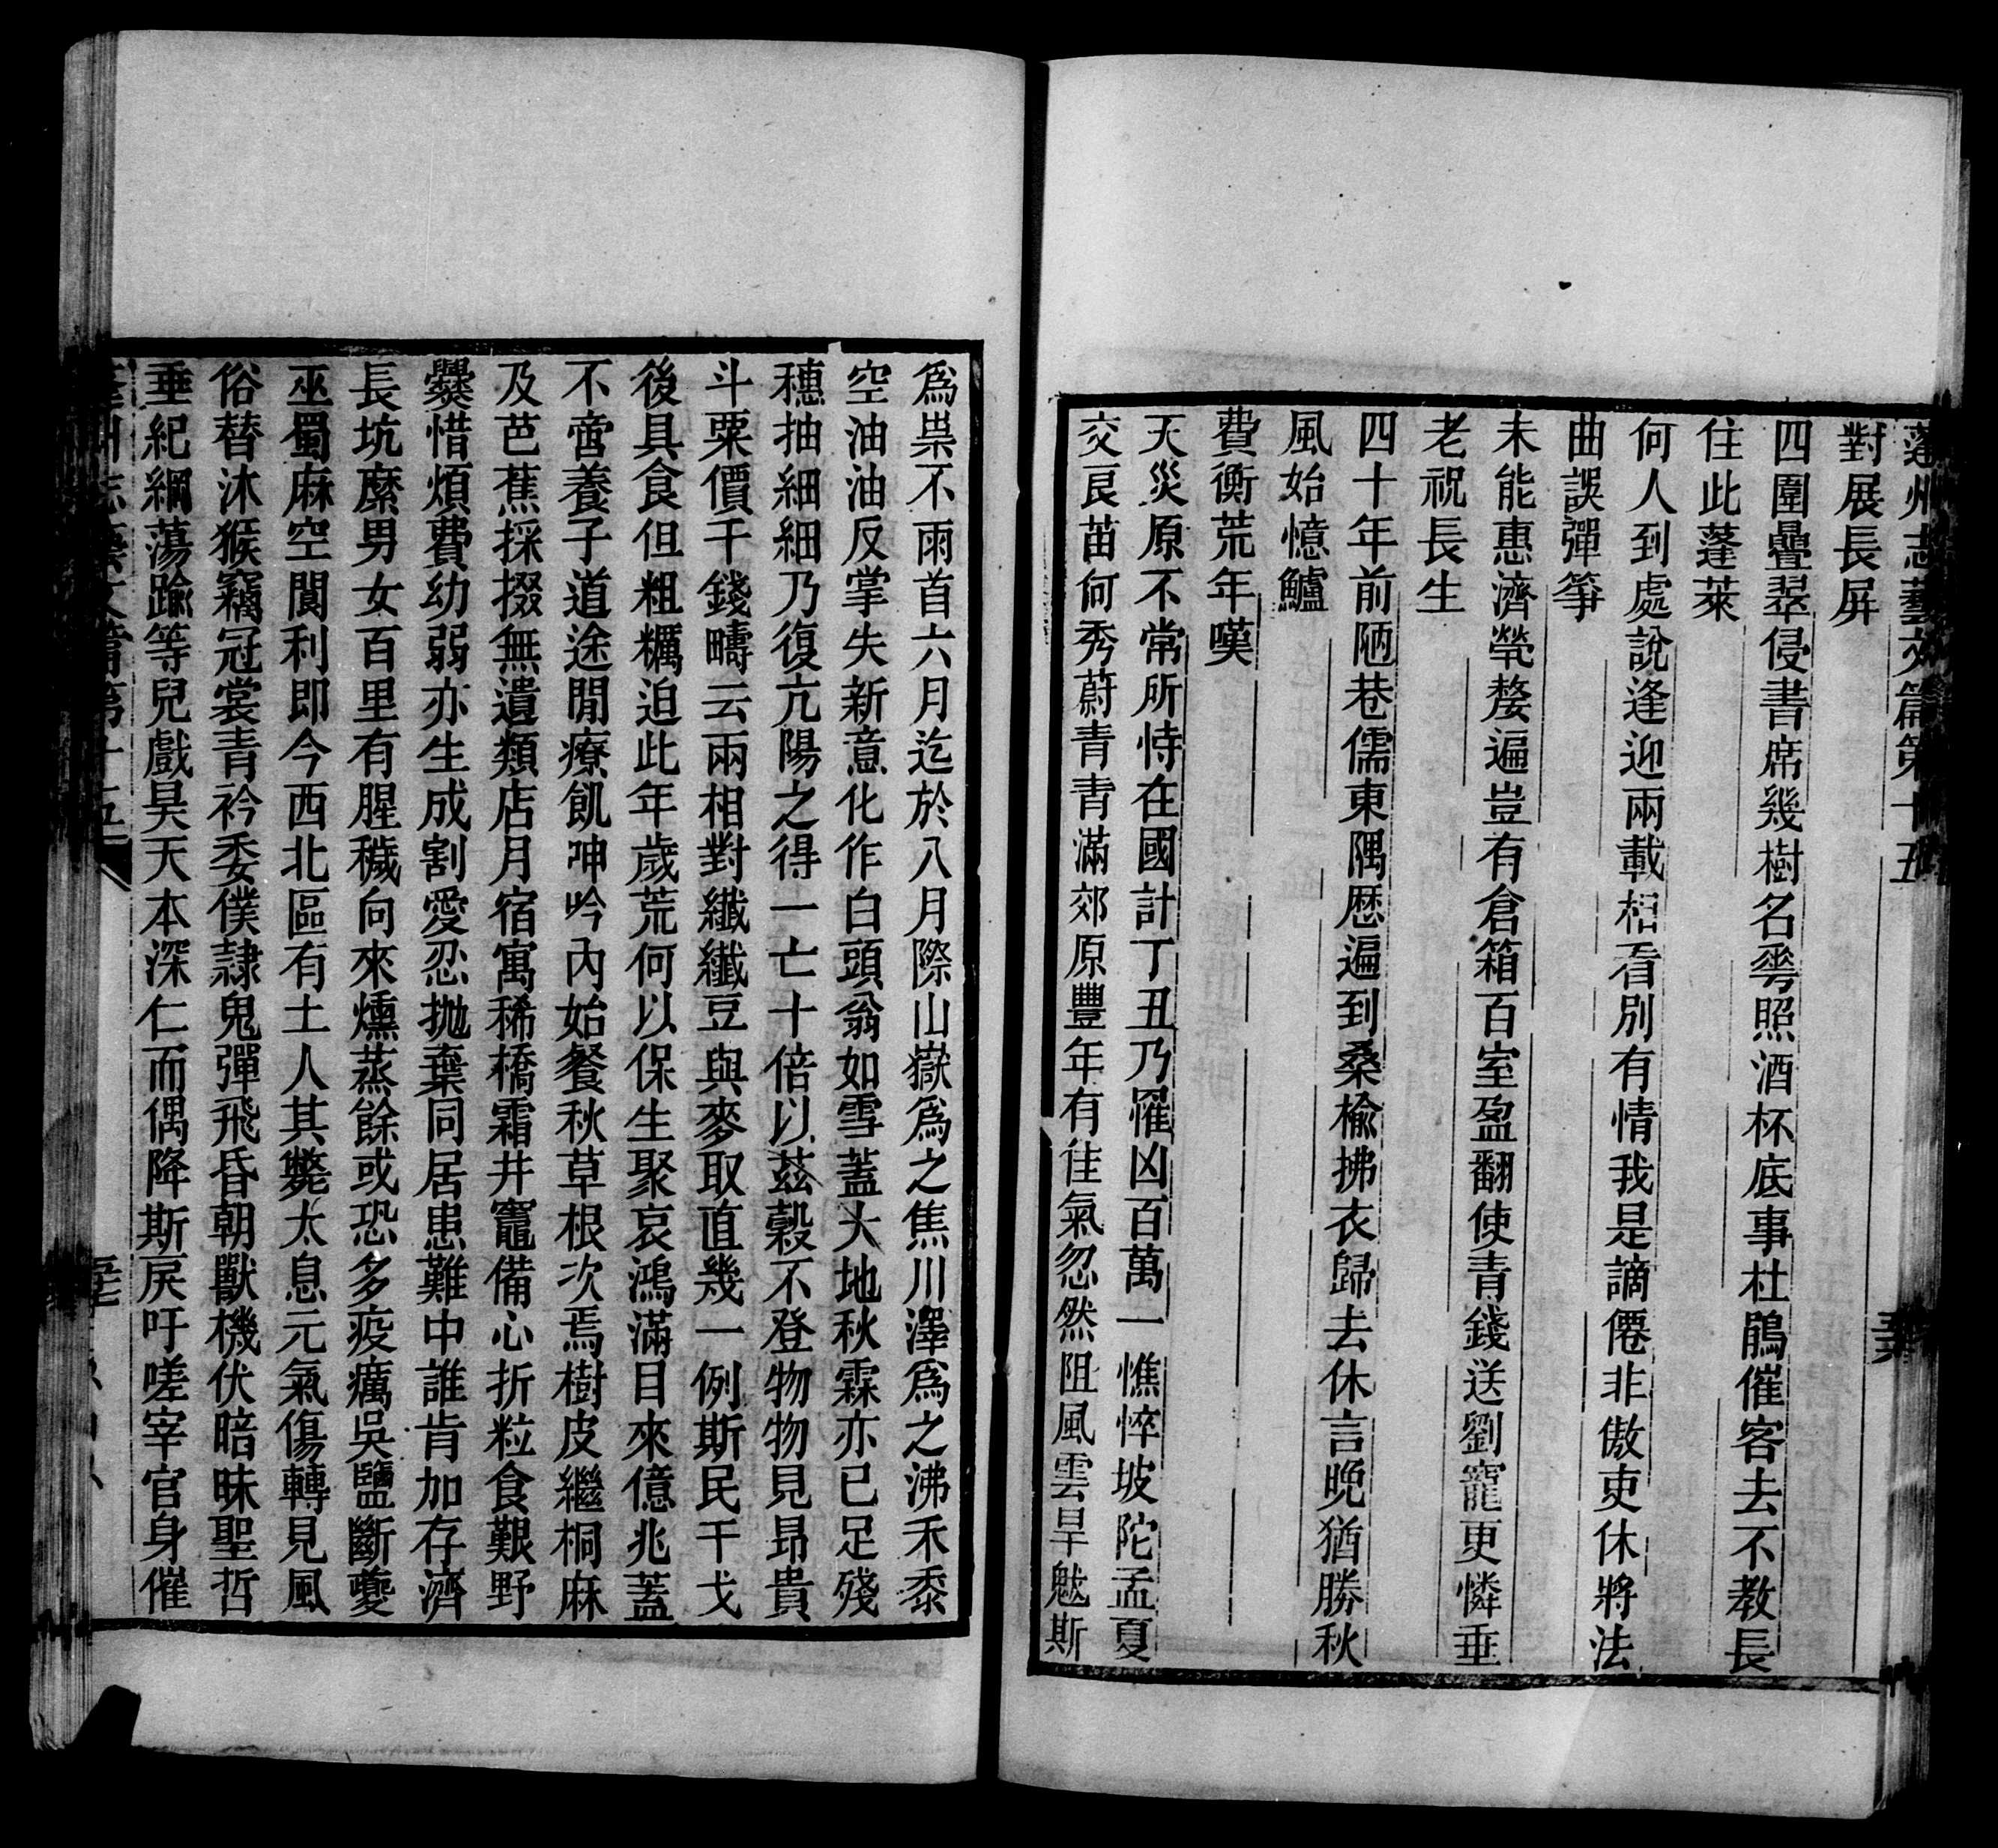 蓬州志藝文篇第十五
對展長屏
四圍疊翠侵書席幾樹名蕚照酒杯底事杜鵑催客去不教長
住此蓬萊
何人到處說逢迎兩載相看別有情我是謫僊非傲吏休將法
曲誤彈箏
未能惠濟煢嫠遍豈有倉箱百室盈翻使青錢送劉寵更憐垂
老祝長生
四十年前陋巷儒東隅歷遍到桑榆拂衣歸去休言晚猶勝秋
風始憶鱸
費衡荒年嘆
天災原不常所恃在國計丁丑乃罹凶百萬一憔悴坡陀孟夏
交良苗何秀蔚青青滿郊原豐年有徍氣忽然阻風雲旱魃斯
為祟不雨首六月迄於八月際山嶽為之焦川澤為之沸禾黍
空油油反掌失新意化作白頭翁如雪蓋大地秋霖亦已足殘
穗抽細細乃復亢陽之得一亡十倍以茲穀不登物物見昂貴
斗粟價千錢疇云兩相對纖纖豆與麥取直幾一例斯民干戈
後具食但粗糲迫此年歲荒何以保生聚哀鴻滿目來億兆蓋
不啻養子道途閒療飢呻吟內始餐秋草根次焉樹皮繼桐麻
及芭蕉採掇無遺類店月宿寓稀橋霜井竈備心折粒食艱野
爨惜煩費幼弱亦生成割愛忍拋棄同居患難中誰肯加存濟
長坑縻男女百里有腥穢向來燻蒸餘或恐多疫癘吳鹽斷夔
巫蜀麻空閬利即今西北區有土人其斃太息元氣傷轉見風
俗替沐猴竊冠裳青衿委僕隸鬼彈飛昏朝獸機伏暗昧聖哲
垂紀綱蕩踰等兒戲昊天本深仁而偶降斯戾吁嗟宰官身催
蓬州志藝文篇第十五